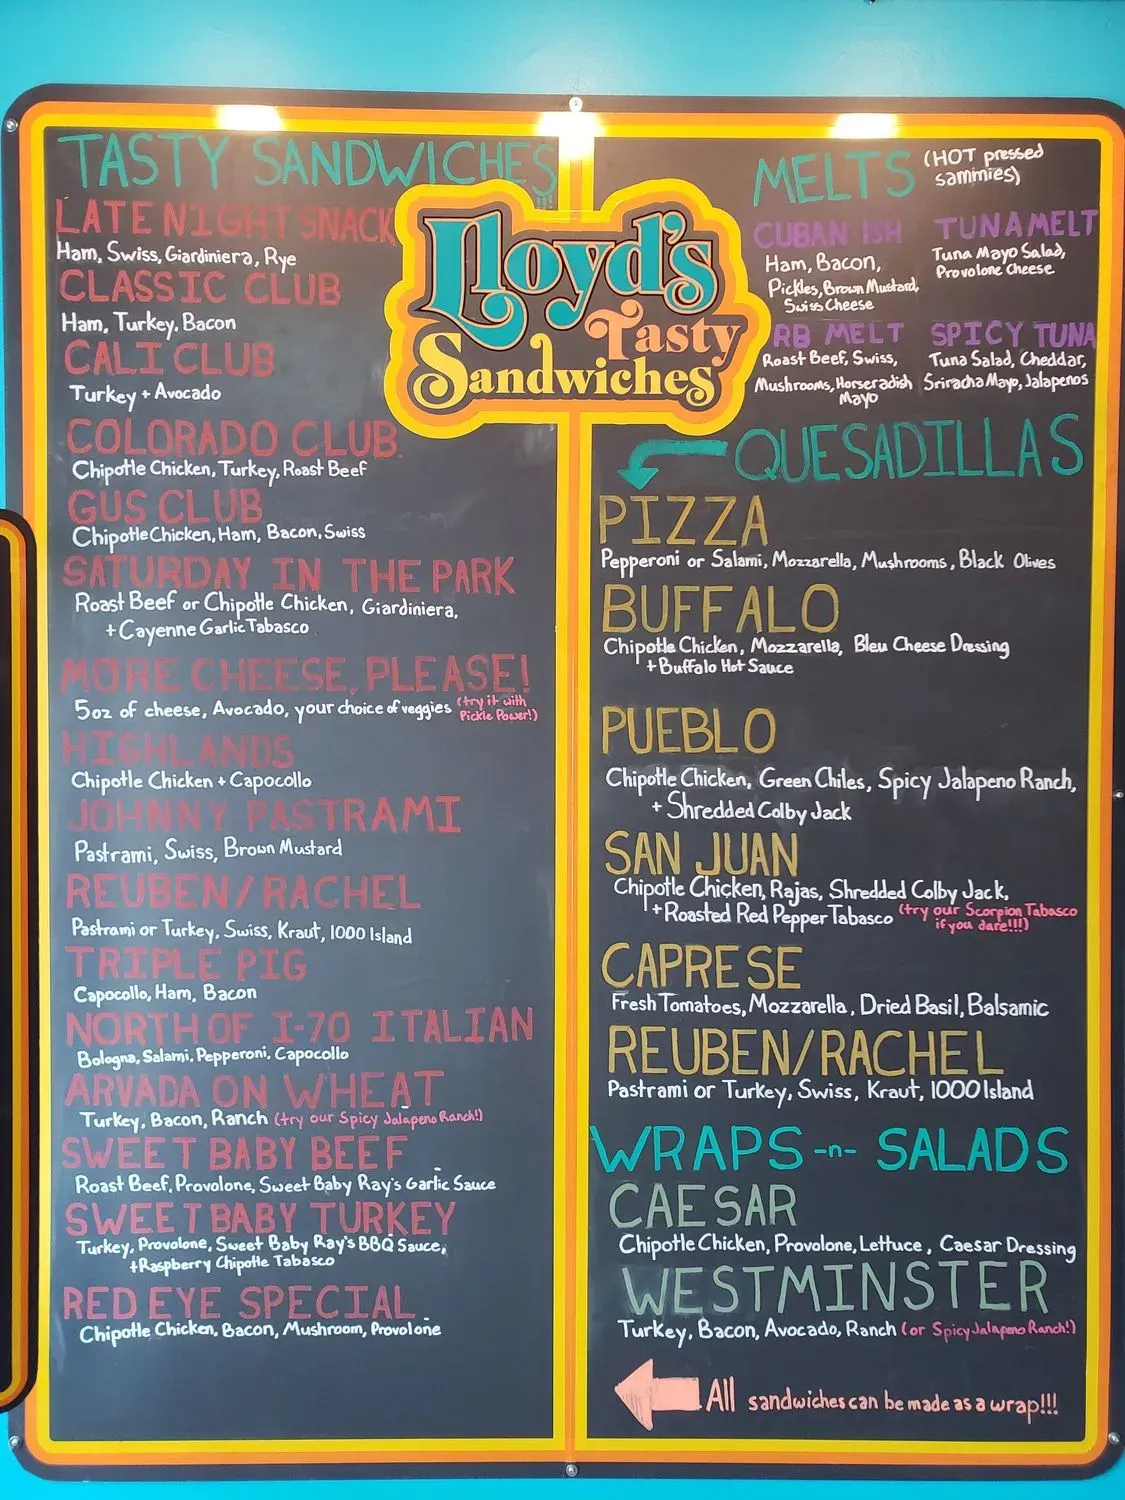 TASTY SANDWICHES!!!
LATE NIGHT SNACK
Ham, Swiss, Giardiniera, Rye
CLASSIC CLUB
Ham, Turkey, Bacon
CALI CLUB
Turkey + Avocado
COLORADO CLUB
Chipotle Chicken, Turkey, Roast Beef
GUS CLUB
Chipotle Chicken, Ham, Bacon, Swiss
SATURDAY IN THE PARK
Roast Beef or Chipotle Chicken, Giardiniera,
+ Cayenne Garlic Tabasco
MORE CHEESE, PLEASE!
5oz of cheese, Avocado, your choice of veggies (try it with
Pickle Power!)
HIGHLANDS
Chipotle Chicken + Capocollo
JOHNNY PASTRAMI
Pastrami, Swiss, Brown Mustard
REUBEN/RACHEL
Pastrami or Turkey, Swiss, Kraut, 1000 Island
TRIPLE PIG
Capocollo, Ham, Bacon
NORTH OF I-70 ITALIAN
Bologna, Salami, Pepperoni, Capocollo
ARVADA ON WHEAT
Turkey, Bacon, Ranch (try our Spicy Jalapeno Ranch!)
SWEET BABY BEEF
Roast Beef, Provolone, Sweet Baby Ray's Garlic Sauce
SWEET BABY TURKEY
Turkey, Provolone, Sweet Baby Ray's BBQ Sauce,
+ Raspberry Chipotle Tabasco
RED EYE SPECIAL
Chipotle Chicken, Bacon, Mushroom, Provolone
Lloyd's
Tasty
Sandwiches
MELTS (HOT pressed
sammies)
CUBAN ISH
Ham, Bacon,
Pickles, Brown Mustard,
Swiss Cheese
TUNA MELT
Tuna Mayo Salad,
Provolone Cheese
RB MELT
Roast Beef, Swiss,
Mushrooms, Horseradish
Mayo
SPICY TUNA
Tuna Salad, Cheddar,
Sriracha Mayo, Jalapenos
QUESADILLAS
PIZZA
Pepperoni or Salami, Mozzarella, Mushrooms, Black Olives
BUFFALO
Chipotle Chicken, Mozzarella, Bleu Cheese Dressing
+ Buffalo Hot Sauce
PUEBLO
Chipotle Chicken, Green Chiles, Spicy Jalapeno Ranch,
+ Shredded Colby Jack
SAN JUAN
Chipotle Chicken, Rajas, Shredded Colby Jack,
+ Roasted Red Pepper Tabasco (try our Scorpion Tabasco
if you dare!!!)
CAPRESE
Fresh Tomatoes, Mozzarella, Dried Basil, Balsamic
REUBEN/RACHEL
Pastrami or Turkey, Swiss, Kraut, 1000 Island
WRAPS -n- SALADS
CAESAR
Chipotle Chicken, Provolone, Lettuce, Caesar Dressing
WESTMINSTER
Turkey, Bacon, Avocado, Ranch (or Spicy Jalapeno Ranch!)
All sandwiches can be made as a wrap!!!